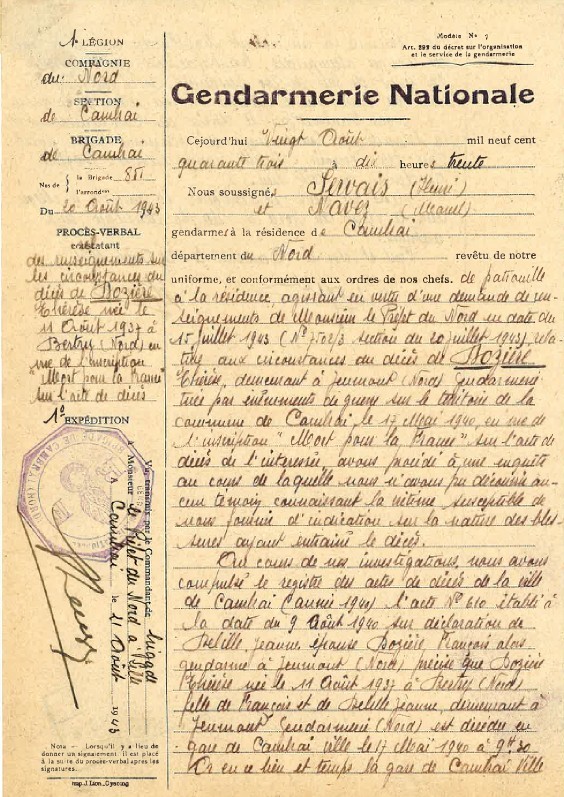 1e LÉGION
COMPAGNIE
du Nord
SECTION
de Cambrai
BRIGADE
de Cambrai
Nos de { la Brigade 851
l'arrondt
Du 20 Août 1943
PROCÈS-VERBAL
constatant
des renseignements sur
les circonstances du
décès de Dozière
Thérèse née le
11 Août 1937 à
Bertry (Nord) en
vue de l'inscription
"Mort pour la France"
sur l'acte de décès
1º EXPÉDITION
Vu et transmis par le Commandant de brigade
à Monsieur le Préfet du Nord à Lille
A Cambrai le 21 Août 1943
NOTA — Lorsqu'il y a lieu de
donner un signalement, il est placé
à la suite du procès-verbal après les
signatures.
Imp. J. Lion, Cysoing
Modèle No 7
Art. 292 du décret sur l'organisation
et le service de la gendarmerie
Gendarmerie Nationale
Cejourd'hui Vingt Août mil neuf cent
quarante trois à dix heures trente
Nous soussignés Servais (Henri)
et Navez (Marcel)
gendarmes à la résidence de Cambrai
département du Nord revêtu de notre
uniforme, et conformément aux ordres de nos chefs. de patrouille
à la résidence, agissant en vertu d'une demande de ren-
seignements de Monsieur le Préfet du Nord en date du
15 juillet 1943 (No section du 20 juillet 1943), rela-
tive aux circonstances du décès de Dozière
Thérèse, demeurant à Jeumont (Nord) Gendarmerie
tuée par évènements de guerre sur le territoire de la
commune de Cambrai le 17 Mai 1940, en vue de
l'inscription "Mort pour la France" sur l'acte de
décès de l'intéressée, avons procédé à une enquête
au cours de laquelle nous n'avons pu découvrir au-
cun témoin connaissant la victime susceptible de
nous fournir d'indication sur la nature des bles-
sures ayant entrainé le décès.
Au cours de nos investigations, nous avons
compulsé le registre des actes de décès de la ville
de Cambrai (année 1940) l'acte No 610 établi à
la date du 9 Août 1940 sur déclaration de
Delille, Jeanne épouse Dozière, François alors
gendarme à Jeumont (Nord) précise que Dozière
Thérèse née le 11 Août 1937 à Bertry (Nord)
fille de François et de Delille Jeanne, demeurant à
Jeumont Gendarmerie (Nord) est décédée en
gare de Cambrai ville le 17 Mai 1940 à 9h30
Or en ce lieu et temps la gare de Cambrai Ville